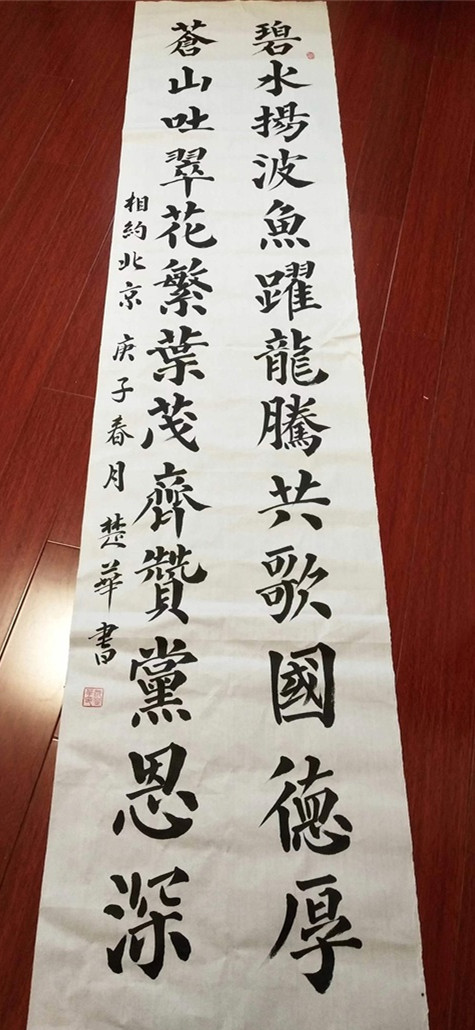 碧水揚波魚躍龍騰共歌國德厚
蒼山吐翠花繁葉茂齊贊黨恩深
相約北京 庚子春月 楚華書